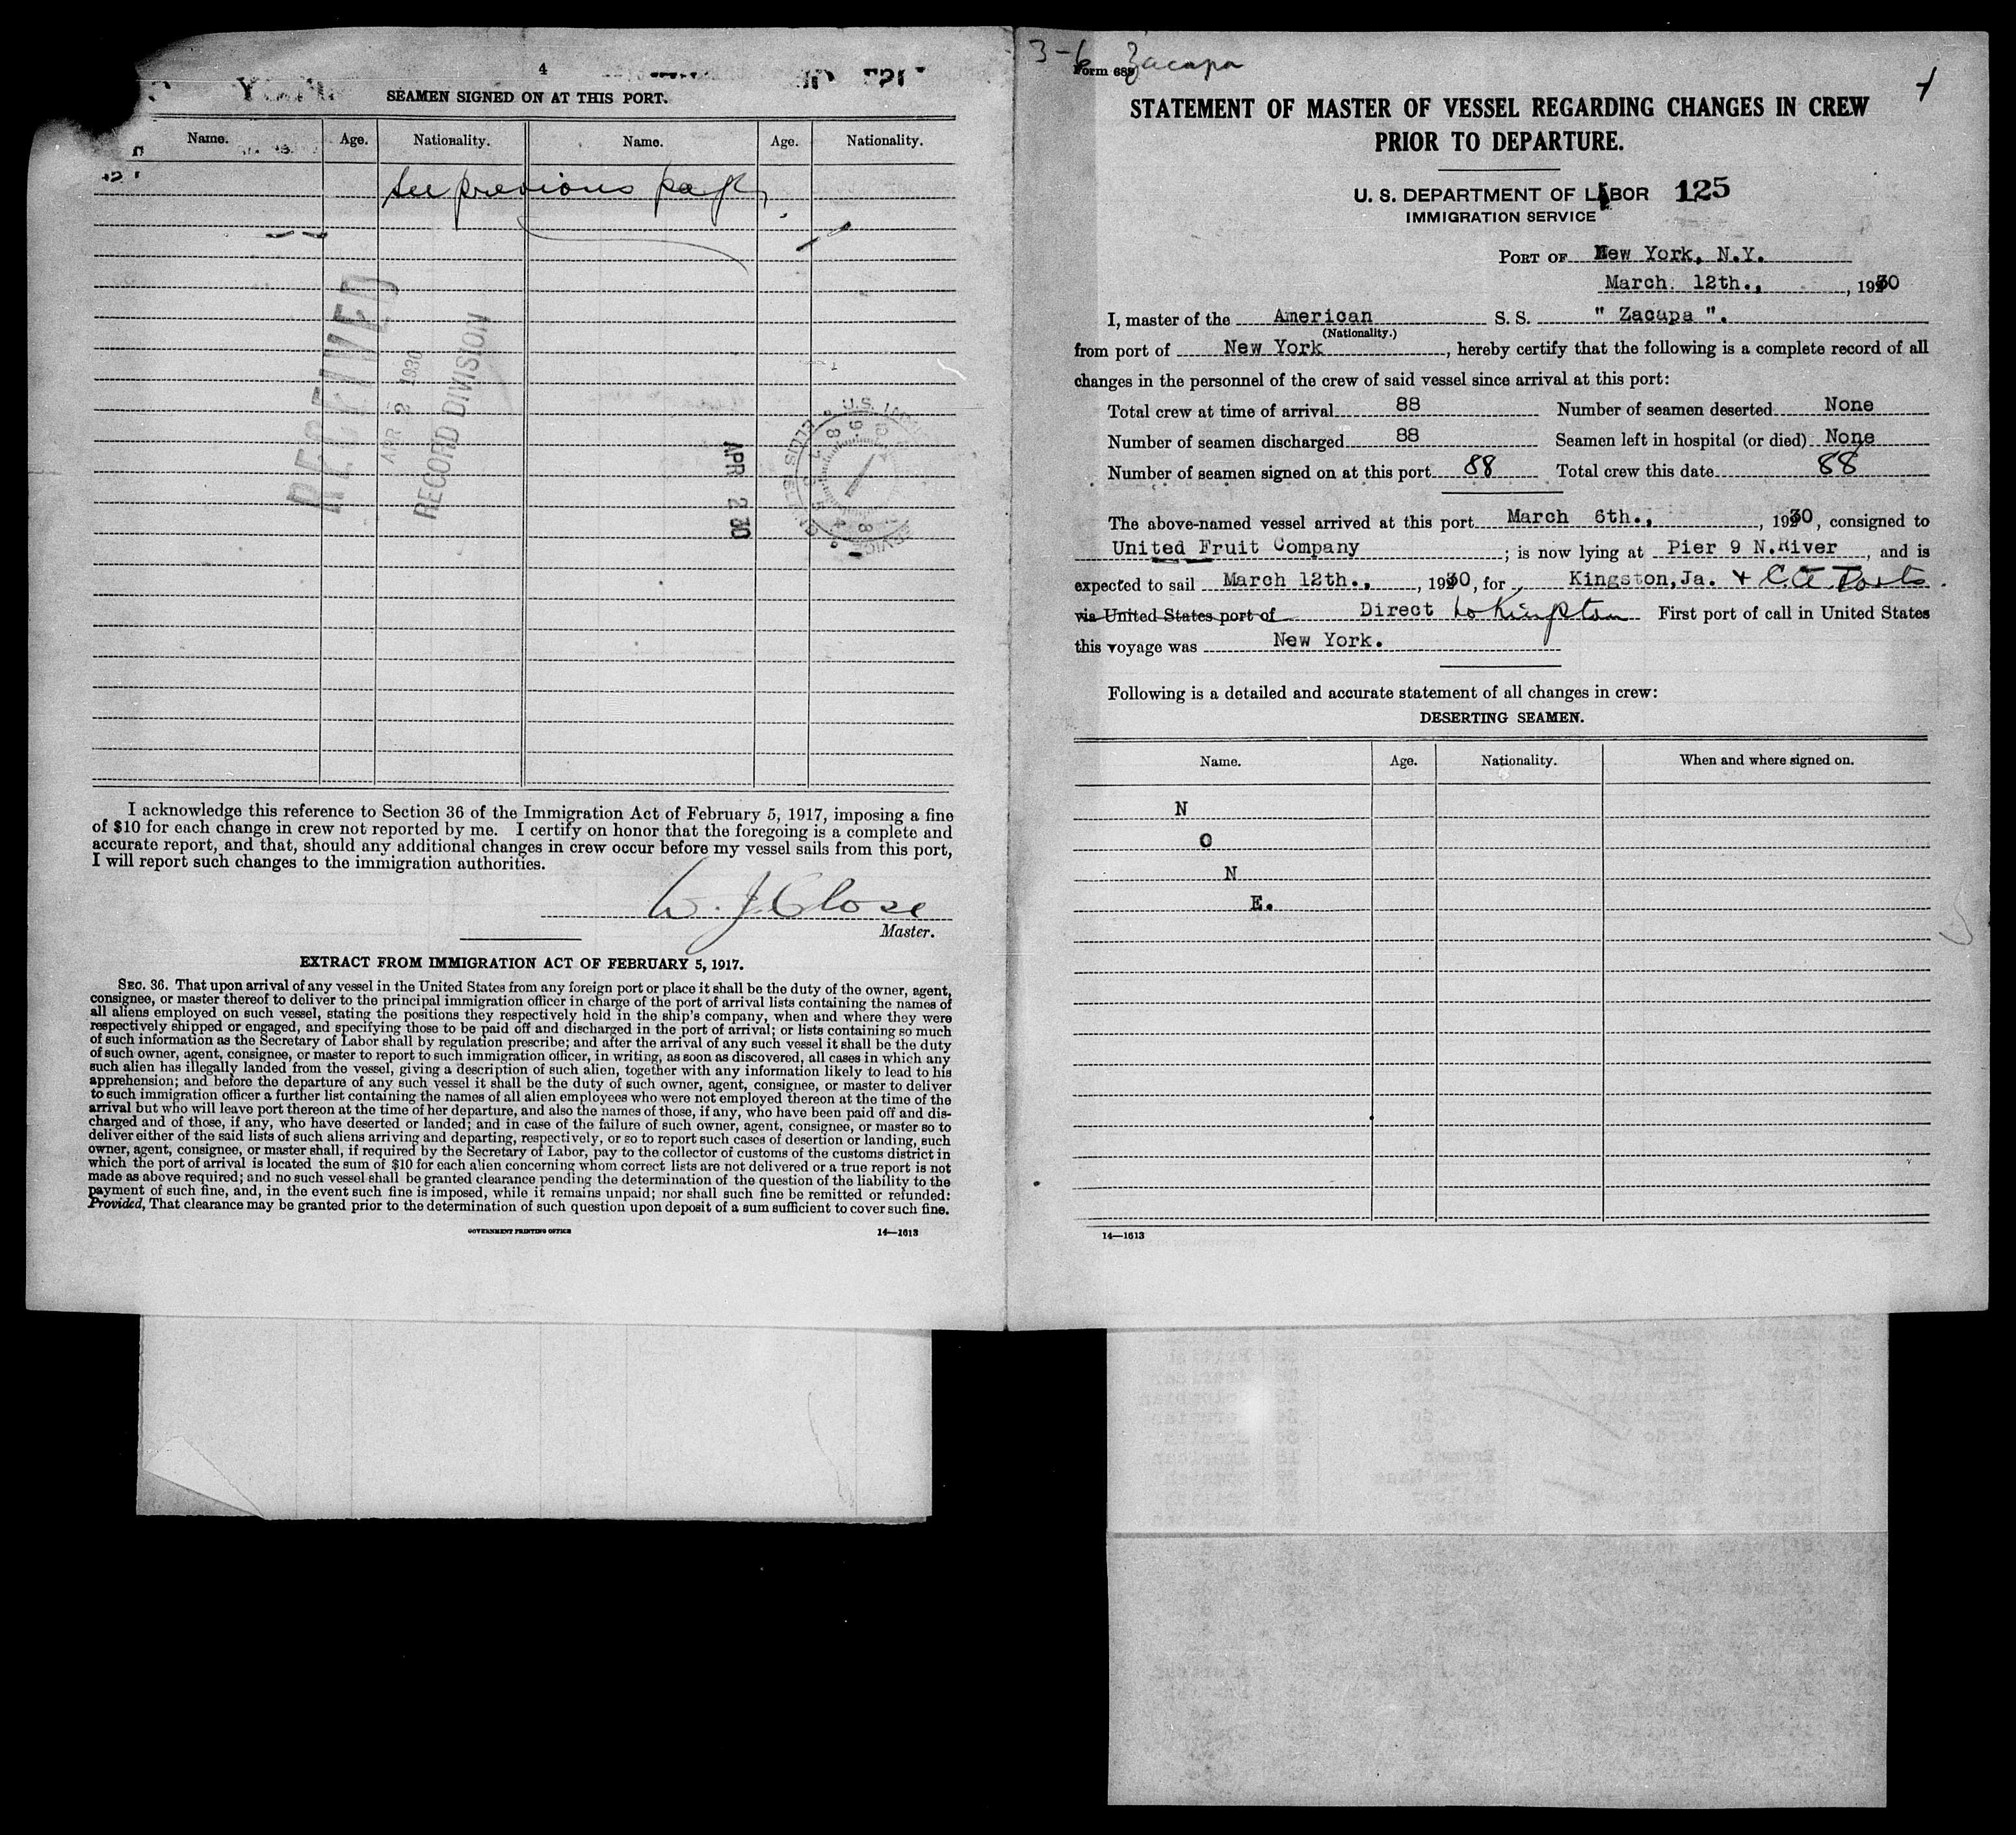 4
SEAMEN SIGNED ON AT THIS PORT.
Name. Age. Nationality. Name. Age. Nationality.
See previous page
RECEIVED
APR 2 1930
RECORD DIVISION
APR 2 30
I acknowledge this reference to Section 36 of the Immigration Act of February 5, 1917, imposing a fine
of $10 for each change in crew not reported by me. I certify on honor that the foregoing is a complete and
accurate report, and that, should any additional changes in crew occur before my vessel sails from this port,
I will report such changes to the immigration authorities.
W. J. Close
Master.
EXTRACT FROM IMMIGRATION ACT OF FEBRUARY 5, 1917.
SEC. 36. That upon arrival of any vessel in the United States from any foreign port or place it shall be the duty of the owner, agent,
consignee, or master thereof to deliver to the principal immigration officer in charge of the port of arrival lists containing the names of
all aliens employed on such vessel, stating the positions they respectively hold in the ship's company, when and where they were
respectively shipped or engaged, and specifying those to be paid off and discharged in the port of arrival; or lists containing so much
of such information as the Secretary of Labor shall by regulation prescribe; and after the arrival of any such vessel it shall be the duty
of such owner, agent, consignee, or master to report to such immigration officer, in writing, as soon as discovered, all cases in which any
such alien has illegally landed from the vessel, giving a description of such alien, together with any information likely to lead to his
apprehension; and before the departure of any such vessel it shall be the duty of such owner, agent, consignee, or master to deliver
to such immigration officer a further list containing the names of all alien employees who were not employed thereon at the time of the
arrival but who will leave port thereon at the time of her departure, and also the names of those, if any, who have been paid off and dis-
charged and of those, if any, who have deserted or landed; and in case of the failure of such owner, agent, consignee, or master so to
deliver either of the said lists of such aliens arriving and departing, respectively, or so to report such cases of desertion or landing, such
owner, agent, consignee, or master shall, if required by the Secretary of Labor, pay to the collector of customs of the customs district in
which the port of arrival is located the sum of $10 for each alien concerning whom correct lists are not delivered or a true report is not
made as above required; and no such vessel shall be granted clearance pending the determination of the question of the liability to the
payment of such fine, and, in the event such fine is imposed, while it remains unpaid; nor shall such fine be remitted or refunded:
Provided, That clearance may be granted prior to the determination of such question upon deposit of a sum sufficient to cover such fine.
GOVERNMENT PRINTING OFFICE 14—1613
3-6 Zacapa
Form 689
1
STATEMENT OF MASTER OF VESSEL REGARDING CHANGES IN CREW
PRIOR TO DEPARTURE.
U. S. DEPARTMENT OF LABOR 125
IMMIGRATION SERVICE
PORT OF New York, N.Y.
March 12th., , 1930
I, master of the American S. S. " Zacapa ".
(Nationality.)
from port of New York, hereby certify that the following is a complete record of all
changes in the personnel of the crew of said vessel since arrival at this port:
Total crew at time of arrival 88 Number of seamen deserted None
Number of seamen discharged 88 Seamen left in hospital (or died) None
Number of seamen signed on at this port 88 Total crew this date 88
The above-named vessel arrived at this port March 6th., , 1930, consigned to
United Fruit Company ; is now lying at Pier 9 N.River , and is
expected to sail March 12th., , 1930, for Kingston, Ja. + C. A. Ports.
via United States port of Direct to Kingston First port of call in United States
this voyage was New York.
Following is a detailed and accurate statement of all changes in crew:
DESERTING SEAMEN.
Name. Age. Nationality. When and where signed on.
N
O
N
E.
14—1613